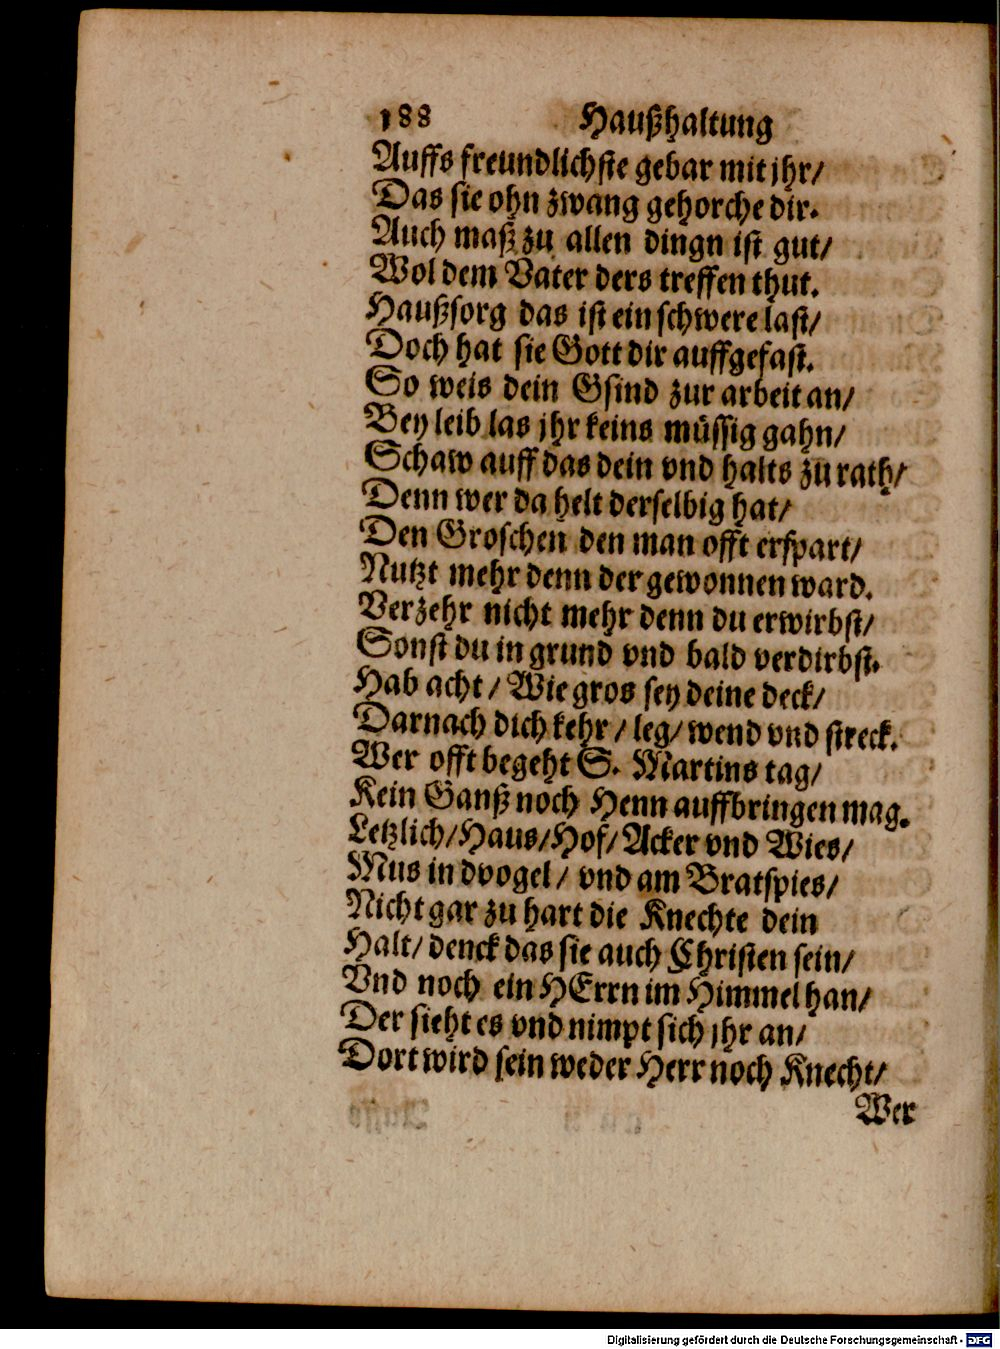 188 Haußhaltung
Auffs freundlichste gebar mit jhr/
Das sie ohn zwang gehorche dir.
Auch maß zu allen dingn ist gut/
Wol dem Vater ders treffen thut.
Haußsorg das ist ein schwere last/
Doch hat sie Gott dir auffgefast.
So weis dein Gsind zur arbeit an/
Bey leib las jhr keins müssig gahn/
Schaw auff das dein vnd halts zu rath/
Denn wer da helt derselbig hat/
Den Groschen den man offt erspart/
Nutzt mehr denn der gewonnen ward.
Verzehr nicht mehr denn du erwirbst/
Sonst du in grund vnd bald verdirbst.
Hab acht / Wie gros sey deine deck/
Darnach dich kehr / leg/ wend vnd streck.
Wer offt begeht S. Martins tag/
Kein Ganß noch Henn auffbringen mag.
Letzlich/Haus/Hof/ Acker vnd Wies/
Mus in dvogel / vnd am Bratspies/
Nicht gar zu hart die Knechte dein
Halt/ denck das sie auch Christen sein/
Vnd noch ein HErrn im Himmel han/
Der sieht es vnd nimpt sich jhr an/
Dort wird sein weder Herr noch Knecht/
Wer
Digitalisierung gefördert durch die Deutsche Forschungsgemeinschaft - DFG